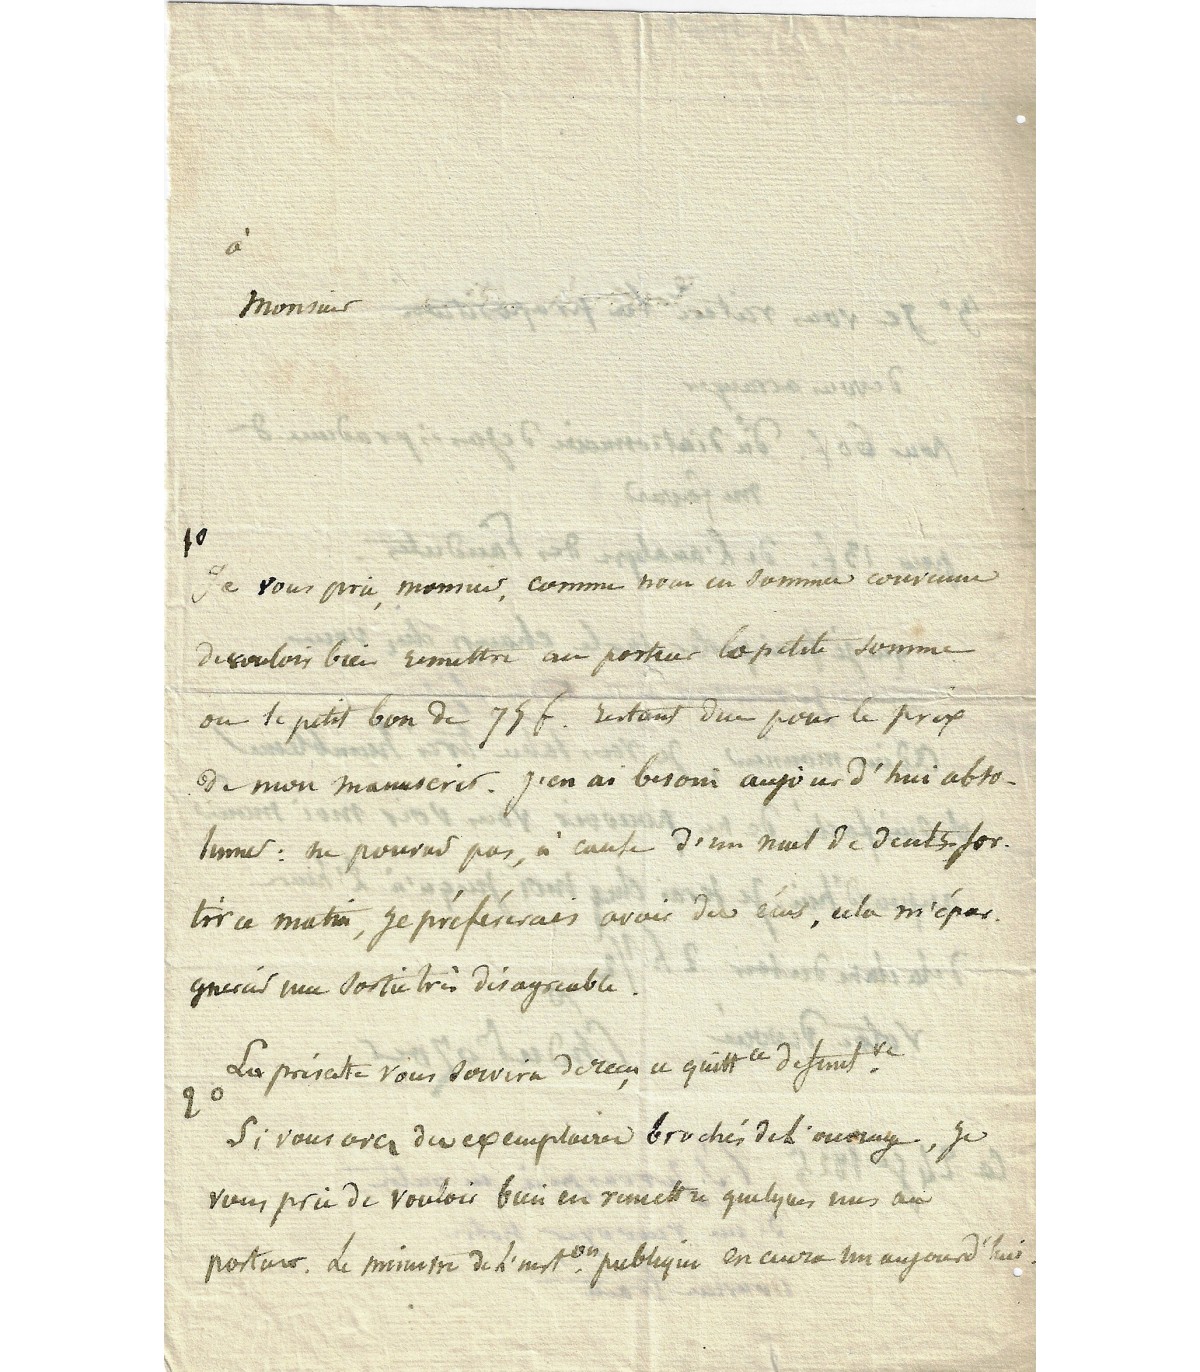 à
Monsieur
1º
Je vous prie, monsieur, comme nous en sommes convenus
de vouloir bien remettre au porteur la petite somme
ou le petit bon de 75 f. restant due pour le prix
de mon manuscrit. J'en ai besoin aujourd'hui abso-
lument : ne pouvant pas, à cause d'un mal de dents, sor-
tir ce matin, je préférerais avoir des écus, cela m'épar-
gnerait une sortie très désagréable.
La présente vous servira de reçu et quittce définitve.
2º
Si vous avez des exemplaires brochés de l'ouvrage, je
vous prie de vouloir bien en remettre quelques uns au
porteur. Le ministre de l'inston publique en aura un aujourd'hui.